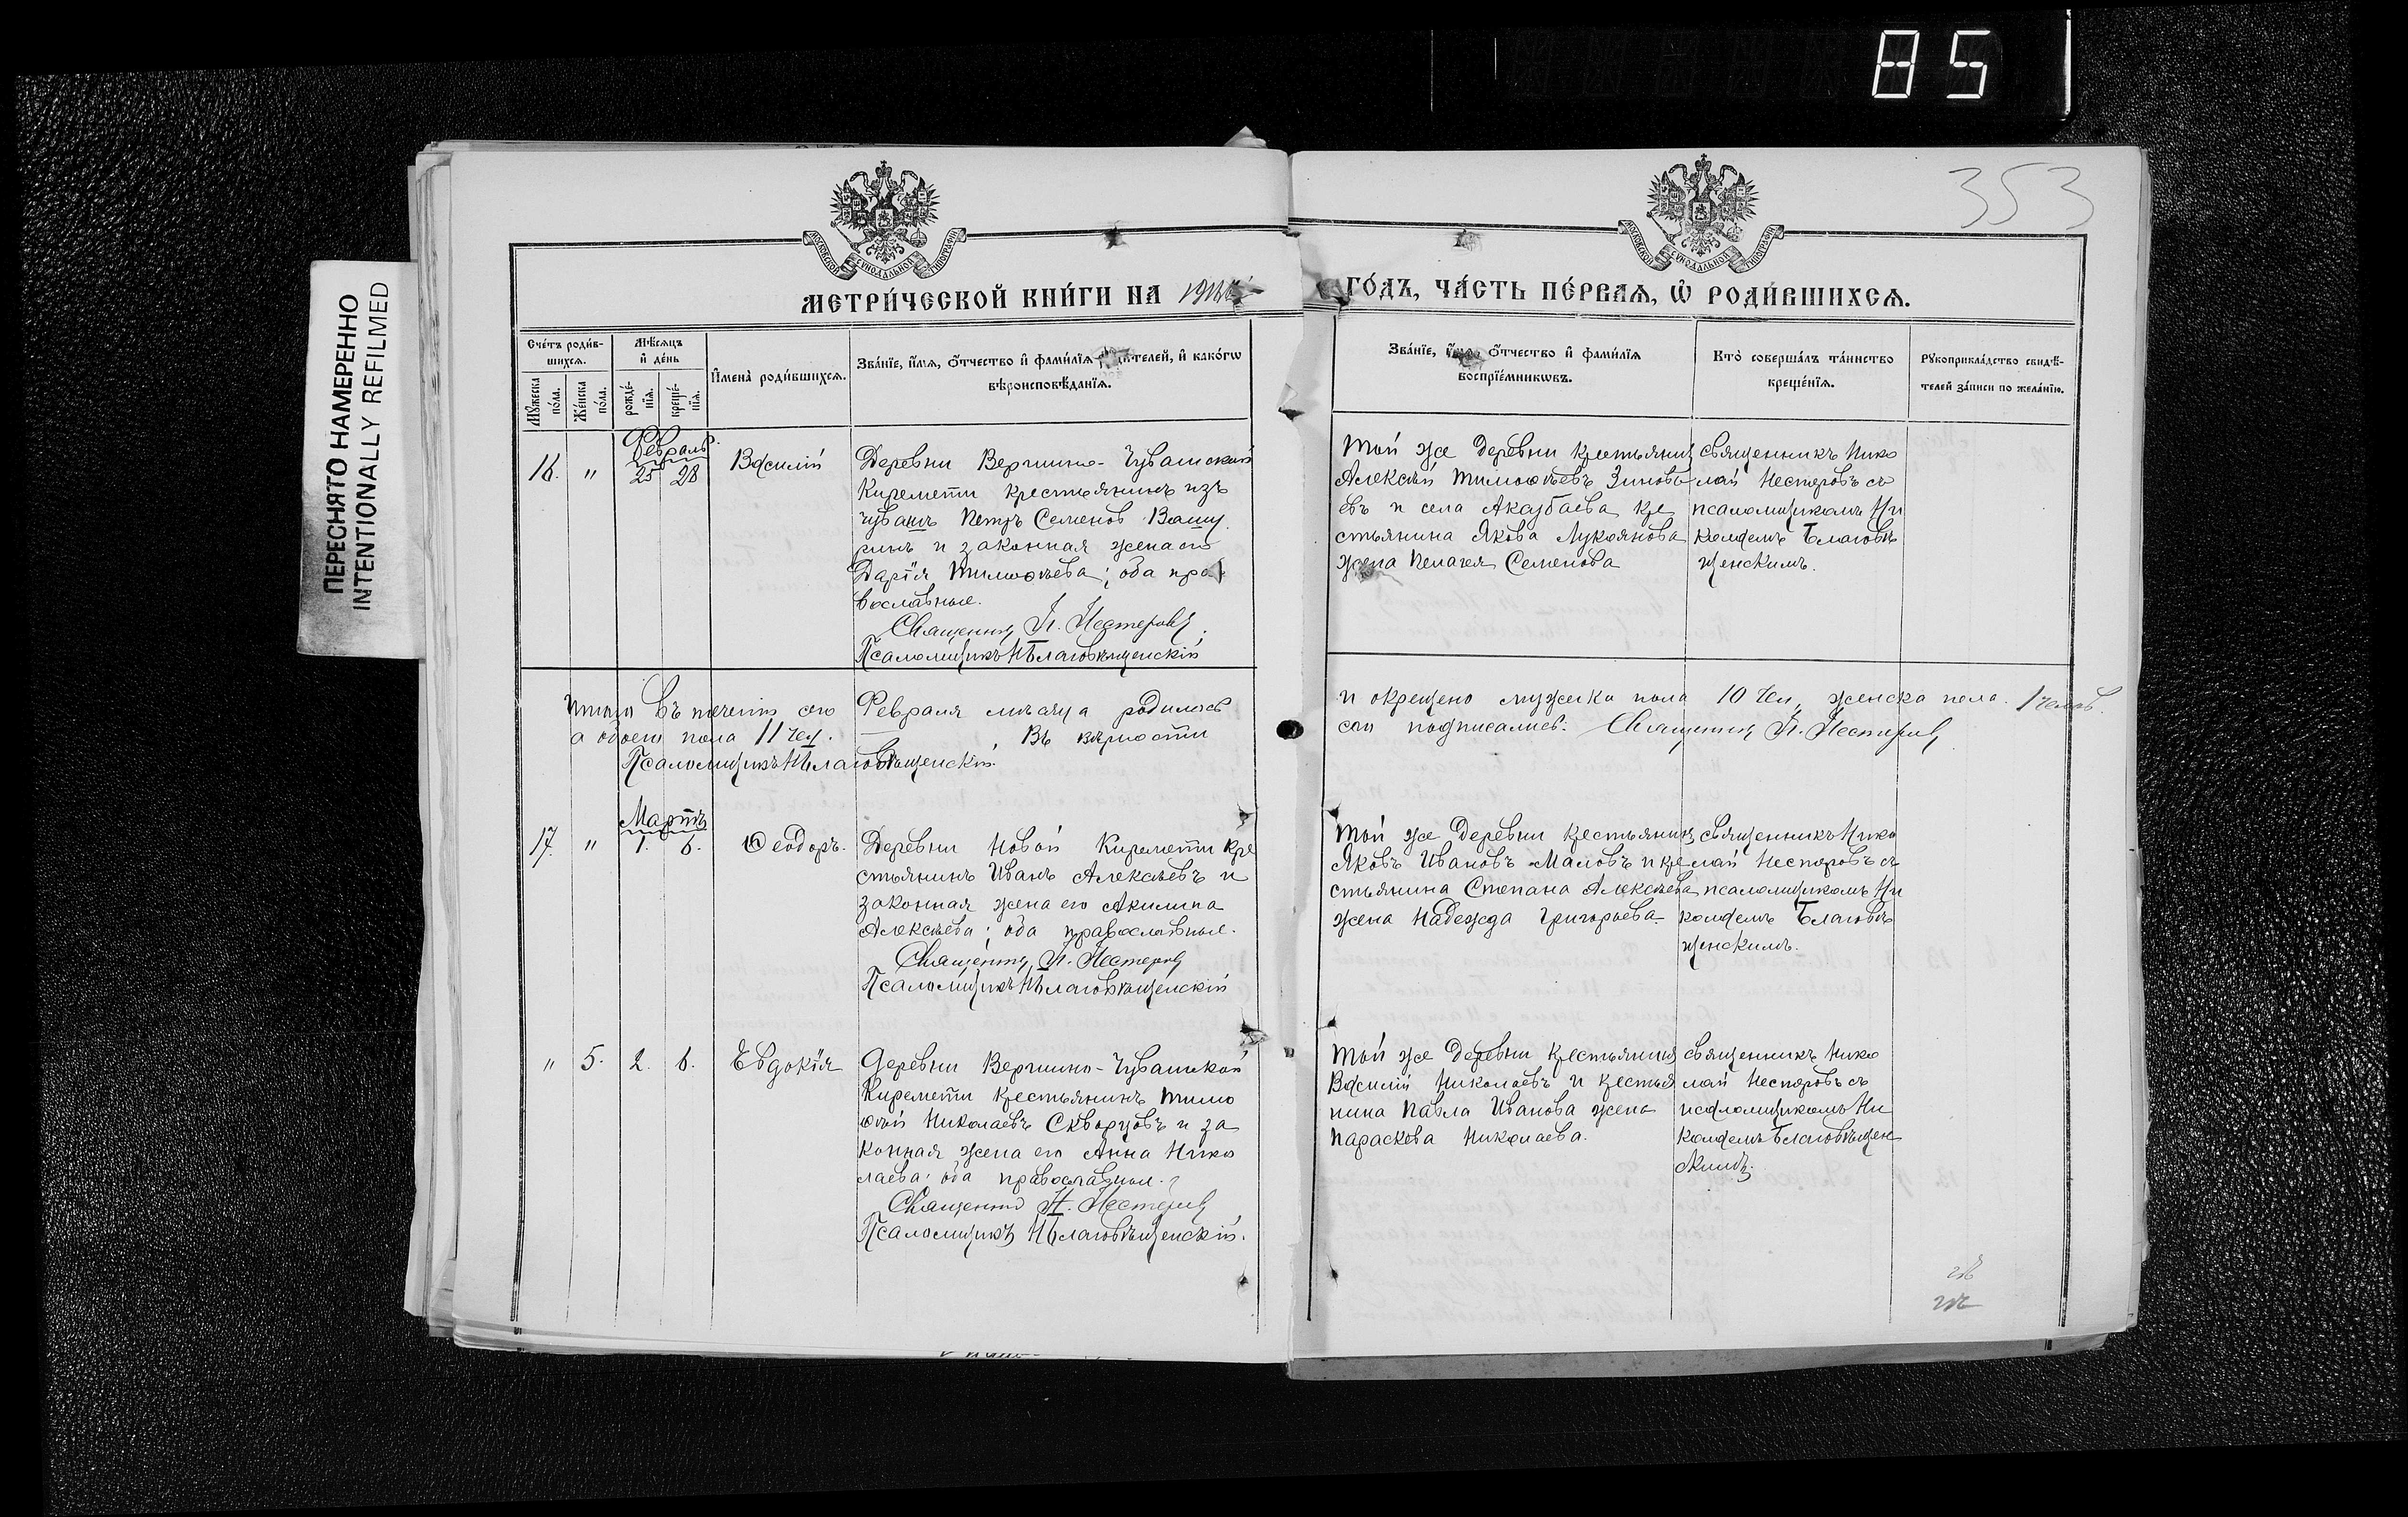 85
ПЕРЕСНЯТО НАМЕРЕННО
INTENTIONALLY REFILMED
353
МОСКОВСКОЙ СѴНОДАЛЬНОЙ ТИПОГРАФІИ
МОСКОВСКОЙ СѴНОДАЛЬНОЙ ТИПОГРАФІИ
МЕТРИ́ЧЕСКОЙ КНИ́ГИ НА
ГО́ДЪ, ЧА́СТЬ ПЕ́РВАѦ, Ѽ РОДИ́ВШИХСѦ.
Сче́тъ роди́в-
шихсѧ.
Мꙋ́жеска по́ла.
Же́нска по́ла.
Мѣ́сѧцъ
и҆ де́нь
рожде́-
нїѧ.
креще́-
нїѧ.
И҆мена̀ роди́вшихсѧ.
Зва́нїе, и҆́мѧ, ѻ҆́тчество и҆ фами́лїѧ роди́телей, и҆ како́гѡ
вѣроисповѣ́данїѧ.
Зва́нїе, и҆́мѧ, ѻ҆́тчество и҆ фами́лїѧ
воспрїе́мникѡвъ.
Кто̀ соверша́лъ та́инство
креще́нїѧ.
Рꙋкоприкла́дство свидѣ́-
телей за́писи по жела́нїю.
Февраль
16. " 25 28 Василій
Деревни Вершино-Чувашской
Киремети крестьянинъ изъ
чувашъ Петръ Семенов Вашу
ринъ и законная жена его
Дарія Тимоѳѣева; оба пра
вославные.
Священникъ Н. Нестеровъ.
Псаломщикъ Н Благовѣщенскій
Той же деревни крестьянинъ
Алексѣй Тимоѳѣевъ Зиновь
евъ и села Аксубаева кре
стьянина Якова Лукоянова
жена Пелагея Семенова
священникъ Нико
лай Нестеровъ съ
псаломщикомъ Ни
колаемъ Благовѣ
щенскимъ.
Итого въ теченіи сего Февраля мѣсяца родилось и окрещено мужска пола 10 чел, женска пола 1 челов.
а обоего пола 11 чел. Въ вѣрности сего подписались: Священникъ Н. Нестеровъ
Псаломщикъ Н Благовѣщенскій.
Мартъ
17. " 1. 6. Ѳеодоръ.
Деревни Новой Киремети кре
стьянинъ Иванъ Алексѣевъ и
законная жена его Акилина
Алексѣева; оба православные.
Священникъ Н. Нестеровъ
Псаломщикъ Н Благовѣщенскій
Той же деревни крестьянинъ
Яковъ Ивановъ Маловъ и кре
стьянина Степана Алексѣева
жена Надежда Григорьева
священникъ Нико
лай Нестеровъ съ
псаломщикомъ Ни
колаемъ Благовѣ
щенскимъ.
" 5. 2. 6. Евдокія
Деревни Вершино-Чувашской
Киремети крестьянинъ Тимо
ѳей Николаевъ Скворцовъ и за
конная жена его Анна Нико
лаева; оба православные.
Священникъ Н. Нестеровъ
Псаломщикъ Н Благовѣщенскій.
Той же деревни крестьянинъ
Василій Николаевъ и крестья
нина Павла Иванова жена
Параскева Николаева.
священникъ Нико
лай Нестеровъ съ
псаломщикомъ Ни
колаемъ Благовѣщен
скимъ.